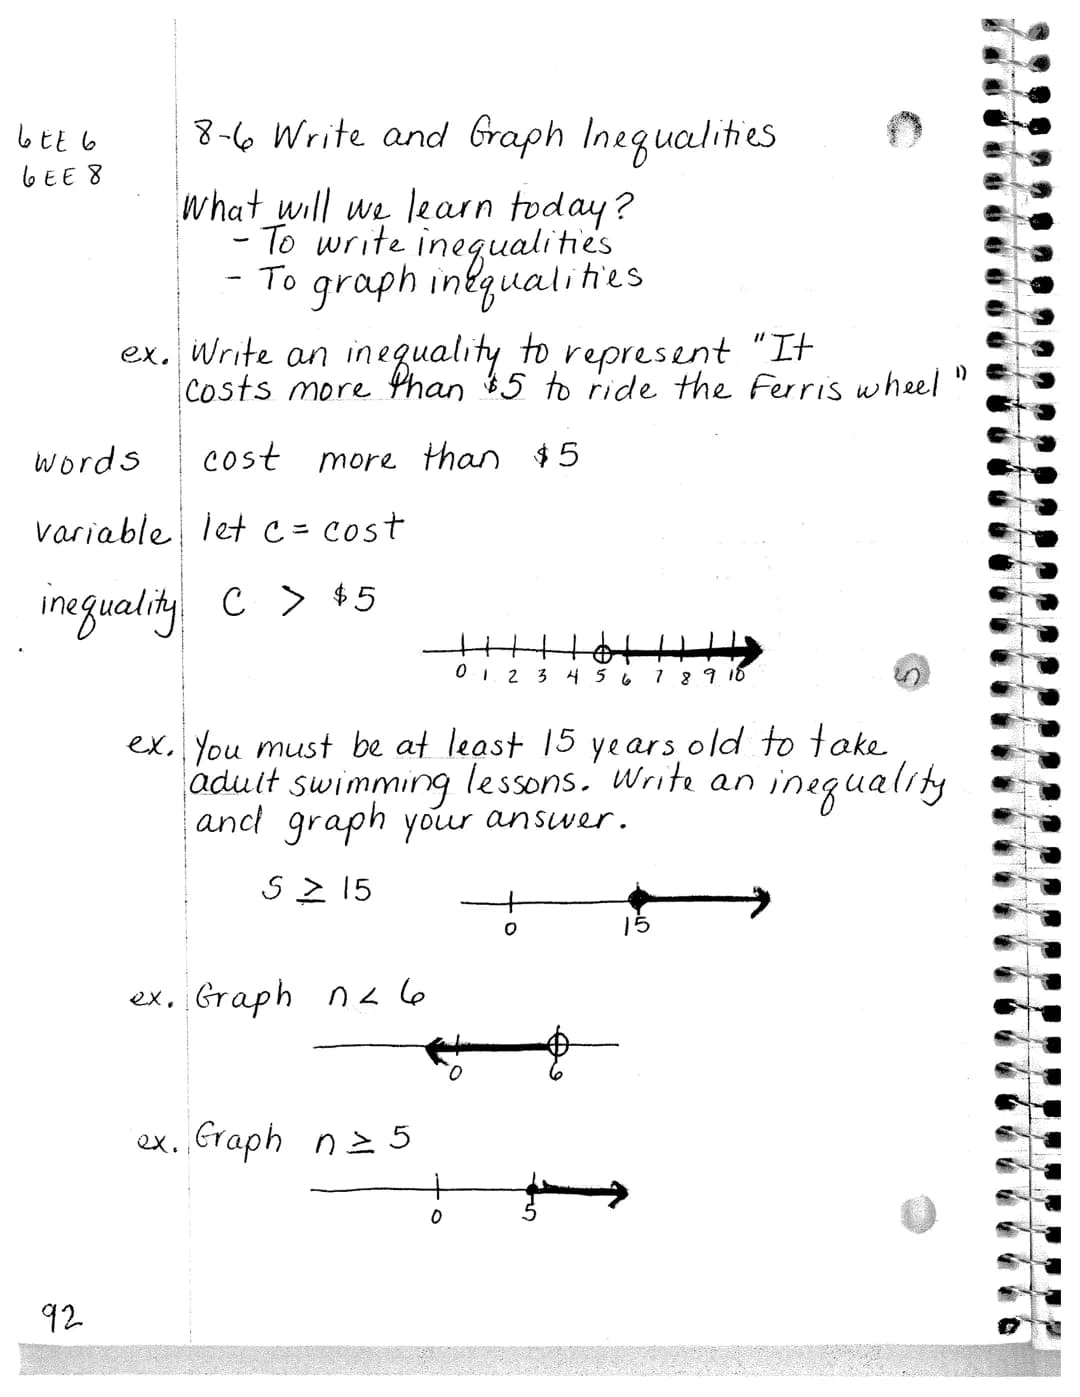 6EE6
6EE8
8-6 Write and Graph Inequalities
What will we learn today?
- To write inequalities
- To graph inequalities
ex. Write an inequality to represent "It
costs more than $5 to ride the Ferris wheel"
words cost more than $5
variable let c = cost
inequality c > $5
0 1 2 3 4 5 6 7 8 9 10
ex. You must be at least 15 years old to take
adult swimming lessons. Write an inequality
and graph your answer.
S ≥ 15
0 15
ex. Graph n < 6
0 6
ex. Graph n ≥ 5
0 5
92